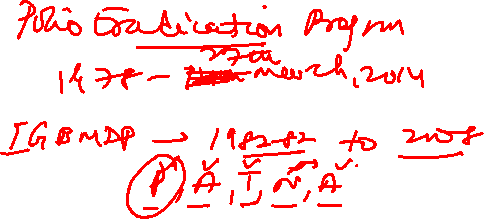 Polio Eradication Program
1978 - 27th march, 2014
IGBMDP → 1982-82 to 2008
P, A, T, N, A